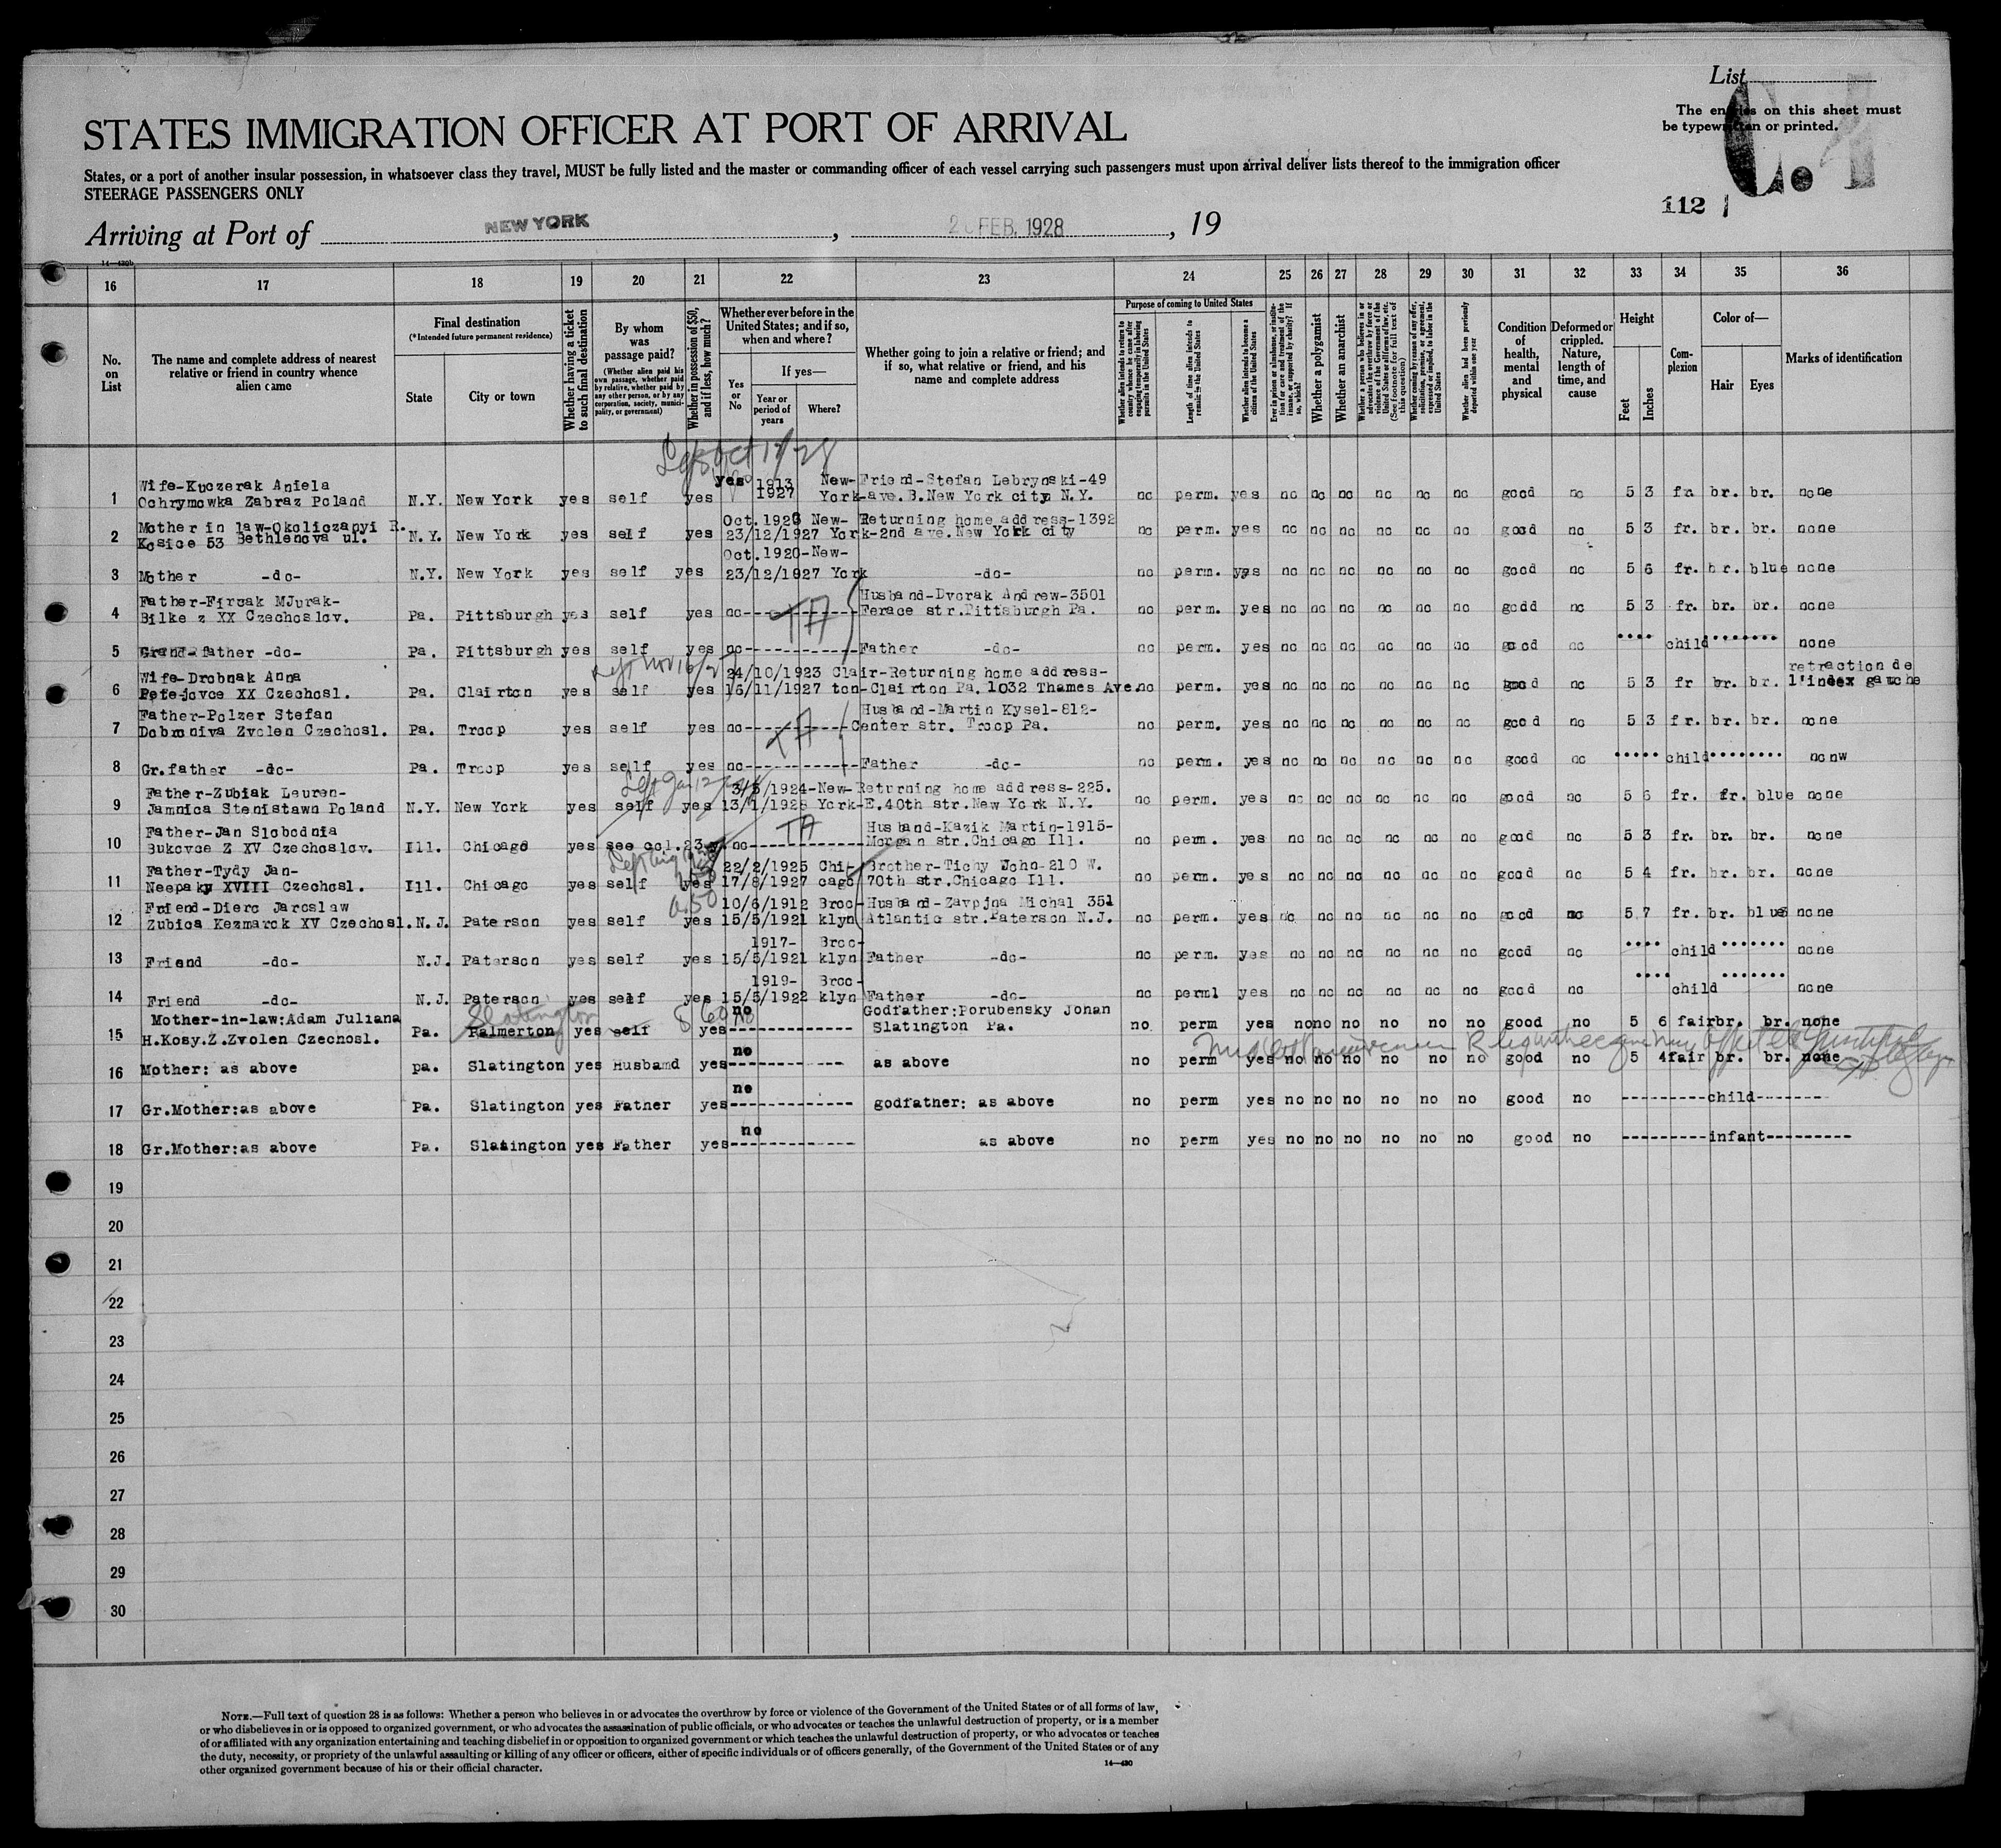 List
The entries on this sheet must
be typewritten or printed.
STATES IMMIGRATION OFFICER AT PORT OF ARRIVAL
States, or a port of another insular possession, in whatsoever class they travel, MUST be fully listed and the master or commanding officer of each vessel carrying such passengers must upon arrival deliver lists thereof to the immigration officer
STEERAGE PASSENGERS ONLY
112
Arriving at Port of NEW YORK , FEB. 1928 , 19
16 17 18 19 20 21 22 23 24 25 26 27 28 29 30 31 32 33 34 35 36
No. on List
The name and complete address of nearest relative or friend in country whence alien came
Final destination
(*Intended future permanent residence)
State
City or town
Whether having a ticket to such final destination
By whom was passage paid?
(Whether alien paid his own passage, whether paid by relative, whether paid by any other person, or by any corporation, society, municipality, or government)
Whether in possession of $50, and if less, how much?
Whether ever before in the United States; and if so, when and where?
Yes or No
If yes—
Year or period of years
Where?
Whether going to join a relative or friend; and if so, what relative or friend, and his name and complete address
Purpose of coming to United States
Length of time alien intends to remain in the United States
Whether alien intends to become a citizen of the United States
Whether a polygamist
Whether an anarchist
Whether alien had been previously deported within one year
Condition of health, mental and physical
Deformed or crippled. Nature, length of time, and cause
Height
Feet
Inches
Complexion
Color of—
Hair
Eyes
Marks of identification
Wife-Kuczerak Aniela yes 1913 New- Friend-Stefan Lebrynski-49
1 Ochrymowka Zabraz Poland N.Y. New York yes self yes 1927 York-ave.B.New York city N.Y. no perm. yes no no no no no no good no 5 3 fr. br. br. none
Mother in law-Okoliczanyi R. Oct.1920 New- Returning home address-1392
2 Kosice 53 Bethlenova ul. N.Y. New York yes self yes 23/12/1927 York-2nd ave.New York city no perm. yes no no no no no no good no 5 3 fr. br. br. none
Oct.1920-New-
3 Mother -do- N.Y. New York yes self yes 23/12/1927 York -do- no perm. yes no no no no no no good no 5 6 fr. br. blue none
Father-Firsak MJurak- Husband-Dvorak Andrew-3501
4 Bilke z XX Czechoslov. Pa. Pittsburgh yes self yes no Ferace str.Pittsburgh Pa. no perm. yes no no no no no no godd no 5 3 fr. br. br. none
5 Grand-father -do- Pa. Pittsburgh yes self yes no Father -do- no perm. yes no no no no no no good no child none
Wife-Drobnak Anna 24/10/1923 Clair-Returning home address- retraction de
6 Petejovce XX Czechosl. Pa. Clairton yes self yes 16/11/1927 ton-Clairton Pa. 1032 Thames Ave. no perm. yes no no no no no no good no 5 3 fr br. br. l'index gauche
Father-Polzer Stefan Husband-Martin Kysel-812-
7 Dobroniva Zvolen Czechosl. Pa. Troop yes self yes no Center str. Troop Pa. no perm. yes no no no no no no good no 5 3 fr. br. br. none
8 Gr.father -do- Pa. Troop yes self yes no Father -do- no perm. yes no no no no no no good no child nonw
Father-Zubiak Lauren- 3/5/1924-New-Returning home address-225.
9 Jamnica Stenistawn Poland N.Y. New York yes self yes 13/1/1928 York-E.40th str.New York N.Y. no perm. yes no no no no no no good no 5 6 fr. fr. blue none
Father-Jan Slobodnia Husband-Kazik Martin-1915-
10 Bukovce Z XV Czechoslov. Ill. Chicago yes see col.23 no Morgan str.Chicago Ill. no perm. yes no no no no no no good no 5 3 fr. br. br. none
Father-Tydy Jan- 22/2/1925 Chi- Brother-Tichy John-210 W.
11 Neepaky XVIII Czechosl. Ill. Chicago yes self yes 17/8/1927 cago 70th str.Chicago Ill. no perm. yes no no no no no no good no 5 4 fr. br. br. none
Friend-Dierc Jaroslaw 10/6/1912 Broo- Husband-Zavpjna Michal 351
12 Zubica Kezmarok XV Czechosl. N.J. Paterson yes self yes 15/5/1921 klyn Atlantic str.Paterson N.J. no perm. yes no no no no no no good no 5 7 fr. br. blue none
1917- Broo-
13 Friend -do- N.J. Paterson yes self yes 15/5/1921 klyn Father -do- no perm. yes no no no no no no good no child none
1919- Broo-
14 Friend -do- N.J. Paterson yes self yes 15/5/1922 klyn Father -do- no perml yes no no no no no no good no child none
Mother-in-law:Adam Juliana Slatington no Godfather:Porubensky Johan
15 H.Kosy.Z.Zvolen Czechosl. Pa. Palmerton yes self yes Slatington Pa. no perm yes no no no no no no good no 5 6 fair br. br. none
no
16 Mother: as above pa. Slatington yes Husbamd yes as above no perm yes no no no no no no good no 5 4 fair br. br. none
no
17 Gr.Mother:as above Pa. Slatington yes Father yes godfather: as above no perm yes no no no no no no good no child
no
18 Gr.Mother:as above Pa. Slatington yes Father yes as above no perm yes no no no no no no good no infant
19
20
21
22
23
24
25
26
27
28
29
30
NOTE.—Full text of question 28 is as follows: Whether a person who believes in or advocates the overthrow by force or violence of the Government of the United States or of all forms of law,
or who disbelieves in or is opposed to organized government, or who advocates the assassination of public officials, or who advocates or teaches the unlawful destruction of property, or is a member
of or affiliated with any organization entertaining and teaching disbelief in or opposition to organized government or which teaches the unlawful destruction of property, or who advocates or teaches
the duty, necessity, or propriety of the unlawful assaulting or killing of any officer or officers, either of specific individuals or of officers generally, of the Government of the United States or of any
other organized government because of his or their official character.
14—430